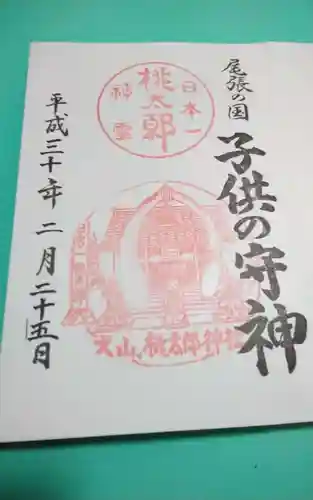 尾張の国
子供の守神
日本一
桃太郎
神霊
犬山、桃太郎神社
平成三十年二月二十五日